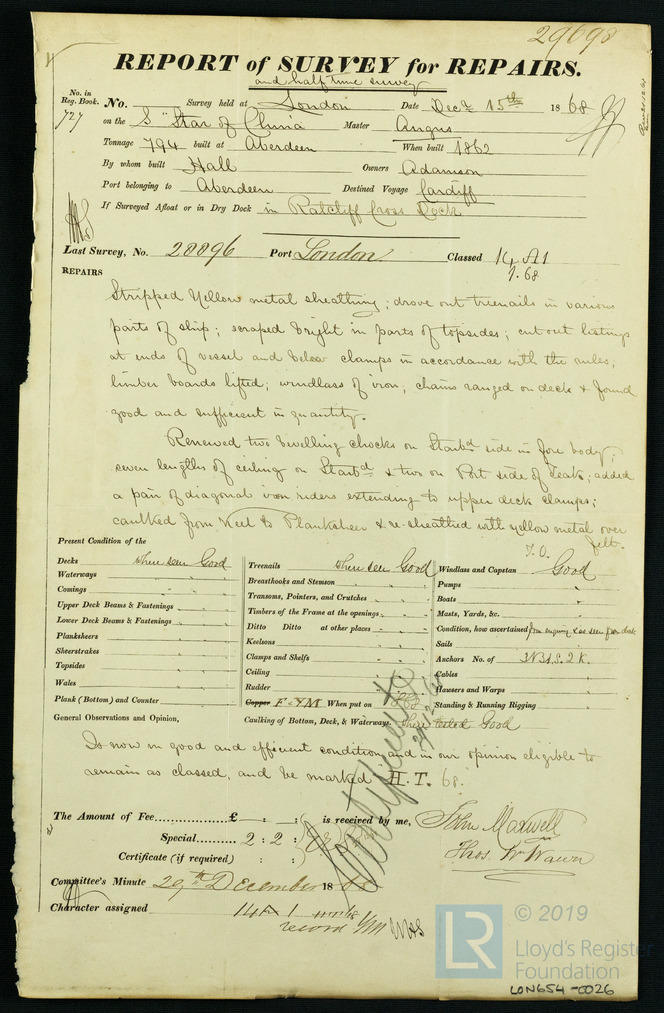 29698
REPORT of SURVEY for REPAIRS.
and half time survey
No. in Reg. Book. No. Survey held at London Date Decr 15th 1868
727 on the S "Star of China Master Angus
Tonnage 794 built at Aberdeen When built 1862
By whom built Hall Owners Adamson
Port belonging to Aberdeen Destined Voyage Cardiff
If Surveyed Afloat or in Dry Dock in Ratcliff Cross Dock
Last Survey, No. 28896 Port London Classed 14 A1
7.68
REPAIRS
Stripped Yellow metal sheathing; drove out treenails in various
parts of ship; scraped bright in parts of topsides; cut out listings
at ends of vessel and below clamps in accordance with the rules;
limber boards lifted; windlass of iron; chains ranged on deck & found
good and sufficient in quantity.
Renewed two bevelling chocks on Starbd side in fore body;
seven lengths of ceiling on Starbd & two on Port side of Peak; added
a pair of diagonal iron riders extending to upper deck clamps;
caulked from Keel to Planksheer & re-sheathed with yellow metal over
felt.
T.O.
Present Condition of the
Decks when seen Good Treenails when seen Good Windlass and Capstan Good
Waterways Breasthooks and Stemson Pumps
Comings Transoms, Pointers, and Crutches Boats
Upper Deck Beams & Fastenings Timbers of the Frame at the openings Masts, Yards, &c.
Lower Deck Beams & Fastenings Ditto Ditto at other places Condition, how ascertained from enquiry & as seen from deck
Planksheers Keelsons Sails
Sheerstrakes Clamps and Shelfs Anchors No. of 3 B. 1 S. 2 K.
Topsides Ceiling Cables
Wales Rudder Hawsers and Warps
Plank (Bottom) and Counter Copper F & YM When put on Standing & Running Rigging
General Observations and Opinion, Caulking of Bottom, Deck, & Waterways. Good
Is now in good and efficient condition and in our opinion eligible to
remain as classed, and be marked H.T. 68.
The Amount of Fee £ : : is received by me, John Maxwell
Special 2 : 2 : Thos. W Wawn
Certificate (if required) : :
Committee's Minute 29th December 1868
Character assigned 14 A 1
record
LR © 2019
Lloyd's Register
Foundation
LON654-0026